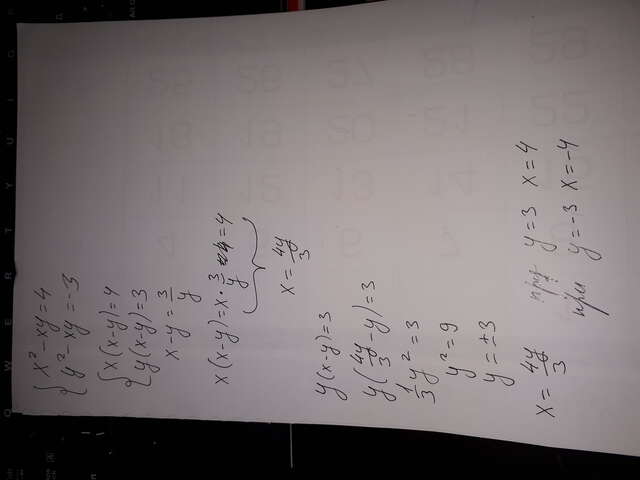 x² - xy = 4
y² - xy = -3
x(x-y) = 4
y(x-y) = 3
x - y = 3/y
x(x-y) = x · 3/y = 4
x = 4y/3
y(x-y) = 3
y(4y/3 - y) = 3
1/3 y² = 3
y² = 9
y = ±3
x = 4y/3 при y = 3 x = 4
при y = -3 x = -4